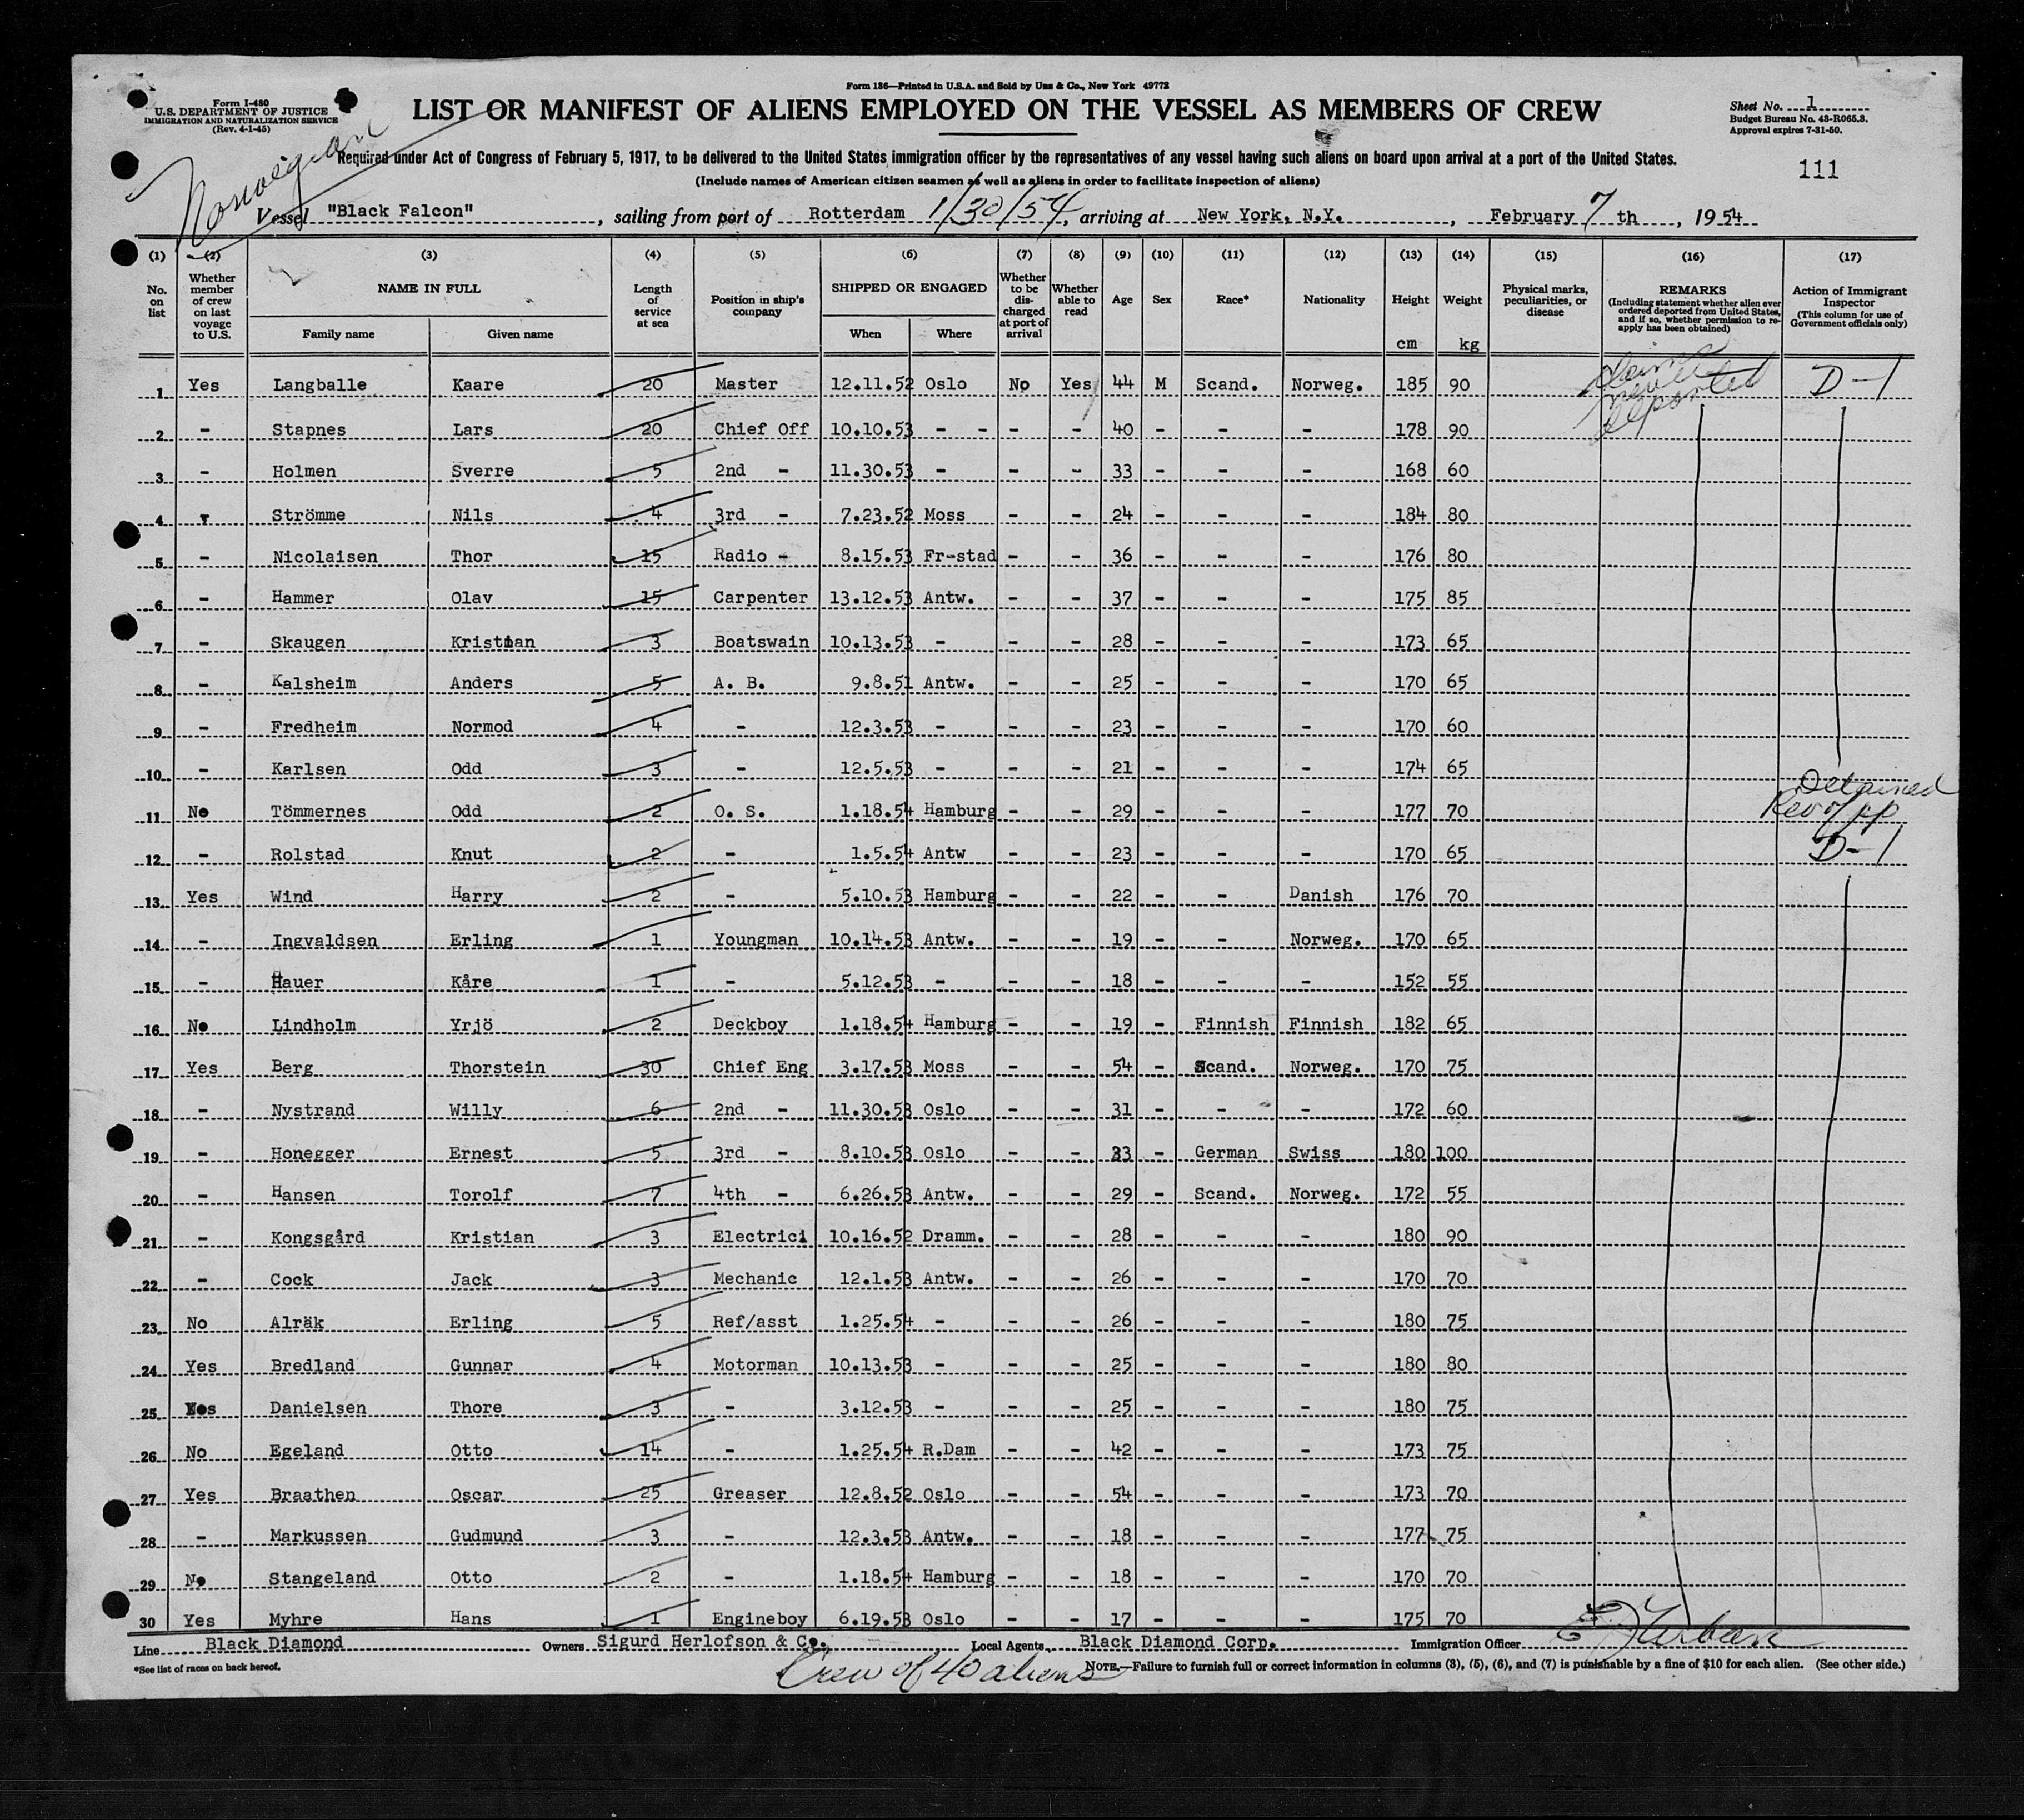 Form 136—Printed in U.S.A. and Sold by Unz & Co., New York 49772
Form I-480
U.S. DEPARTMENT OF JUSTICE
IMMIGRATION AND NATURALIZATION SERVICE
(Rev. 4-1-45)
LIST OR MANIFEST OF ALIENS EMPLOYED ON THE VESSEL AS MEMBERS OF CREW
Sheet No. 1
Budget Bureau No. 43-R065.3.
Approval expires 7-31-50.
Required under Act of Congress of February 5, 1917, to be delivered to the United States immigration officer by the representatives of any vessel having such aliens on board upon arrival at a port of the United States.
111
(Include names of American citizen seamen as well as aliens in order to facilitate inspection of aliens)
Norwegian
Vessel "Black Falcon", sailing from port of Rotterdam 1/30/54, arriving at New York, N.Y., February 7 th, 1954
(1) (2) (3) (4) (5) (6) (7) (8) (9) (10) (11) (12) (13) (14) (15) (16) (17)
No. on list
Whether member of crew on last voyage to U.S.
NAME IN FULL
Family name
Given name
Length of service at sea
Position in ship's company
SHIPPED OR ENGAGED
When
Where
Whether to be discharged at port of arrival
Whether able to read
Age
Sex
Race*
Nationality
Height
cm
Weight
kg
Physical marks, peculiarities, or disease
REMARKS
(Including statement whether alien ever ordered deported from United States, and if so, whether permission to re-apply has been obtained)
Action of Immigrant Inspector
(This column for use of Government officials only)
1 Yes Langballe Kaare 20 Master 12.11.52 Oslo No Yes 44 M Scand. Norweg. 185 90 never deported D-1
2 - Stapnes Lars 20 Chief Off 10.10.53 - - - - 40 - - - 178 90
3 - Holmen Sverre 5 2nd - 11.30.53 - - - 33 - - - 168 60
4 - Strömme Nils 4 3rd - 7.23.52 Moss - - 24 - - - 184 80
5 - Nicolaisen Thor 15 Radio - 8.15.53 Fr-stad - - 36 - - - 176 80
6 - Hammer Olav 15 Carpenter 13.12.53 Antw. - - 37 - - - 175 85
7 - Skaugen Kristian 3 Boatswain 10.13.53 - - - 28 - - - 173 65
8 - Kalsheim Anders 5 A. B. 9.8.51 Antw. - - 25 - - - 170 65
9 - Fredheim Normod 4 - 12.3.53 - - - 23 - - - 170 60
10 - Karlsen Odd 3 - 12.5.53 - - - 21 - - - 174 65
11 No Tömmernes Odd 2 O. S. 1.18.54 Hamburg - - 29 - - - 177 70 Detained
12 - Rolstad Knut 2 - 1.5.54 Antw - - 23 - - - 170 65 D-1
13 Yes Wind Harry 2 - 5.10.53 Hamburg - - 22 - - Danish 176 70
14 - Ingvaldsen Erling 1 Youngman 10.14.53 Antw. - - 19 - - Norweg. 170 65
15 - Hauer Kåre 1 - 5.12.53 - - - 18 - - - 152 55
16 No Lindholm Yrjö 2 Deckboy 1.18.54 Hamburg - - 19 - Finnish Finnish 182 65
17 Yes Berg Thorstein 30 Chief Eng 3.17.53 Moss - - 54 - Scand. Norweg. 170 75
18 - Nystrand Willy 6 2nd - 11.30.53 Oslo - - 31 - - - 172 60
19 - Honegger Ernest 5 3rd - 8.10.53 Oslo - - 33 - German Swiss 180 100
20 - Hansen Torolf 7 4th - 6.26.53 Antw. - - 29 - Scand. Norweg. 172 55
21 - Kongsgård Kristian 3 Electrici 10.16.52 Dramm. - - 28 - - - 180 90
22 - Cock Jack 3 Mechanic 12.1.53 Antw. - - 26 - - - 170 70
23 No Alräk Erling 5 Ref/asst 1.25.54 - - - 26 - - - 180 75
24 Yes Bredland Gunnar 4 Motorman 10.13.53 - - - 25 - - - 180 80
25 Yes Danielsen Thore 3 - 3.12.53 - - - 25 - - - 180 75
26 No Egeland Otto 14 - 1.25.54 R.Dam - - 42 - - - 173 75
27 Yes Braathen Oscar 25 Greaser 12.8.52 Oslo - - 54 - - - 173 70
28 - Markussen Gudmund 3 - 12.3.53 Antw. - - 18 - - - 177 75
29 No Stangeland Otto 2 - 1.18.54 Hamburg - - 18 - - - 170 70
30 Yes Myhre Hans 1 Engineboy 6.19.53 Oslo - - 17 - - - 175 70
Line Black Diamond Owners Sigurd Herlofson & Co. Local Agents Black Diamond Corp. Immigration Officer
*See list of races on back hereof.
Crew of 40 aliens
NOTE.—Failure to furnish full or correct information in columns (3), (5), (6), and (7) is punishable by a fine of $10 for each alien. (See other side.)